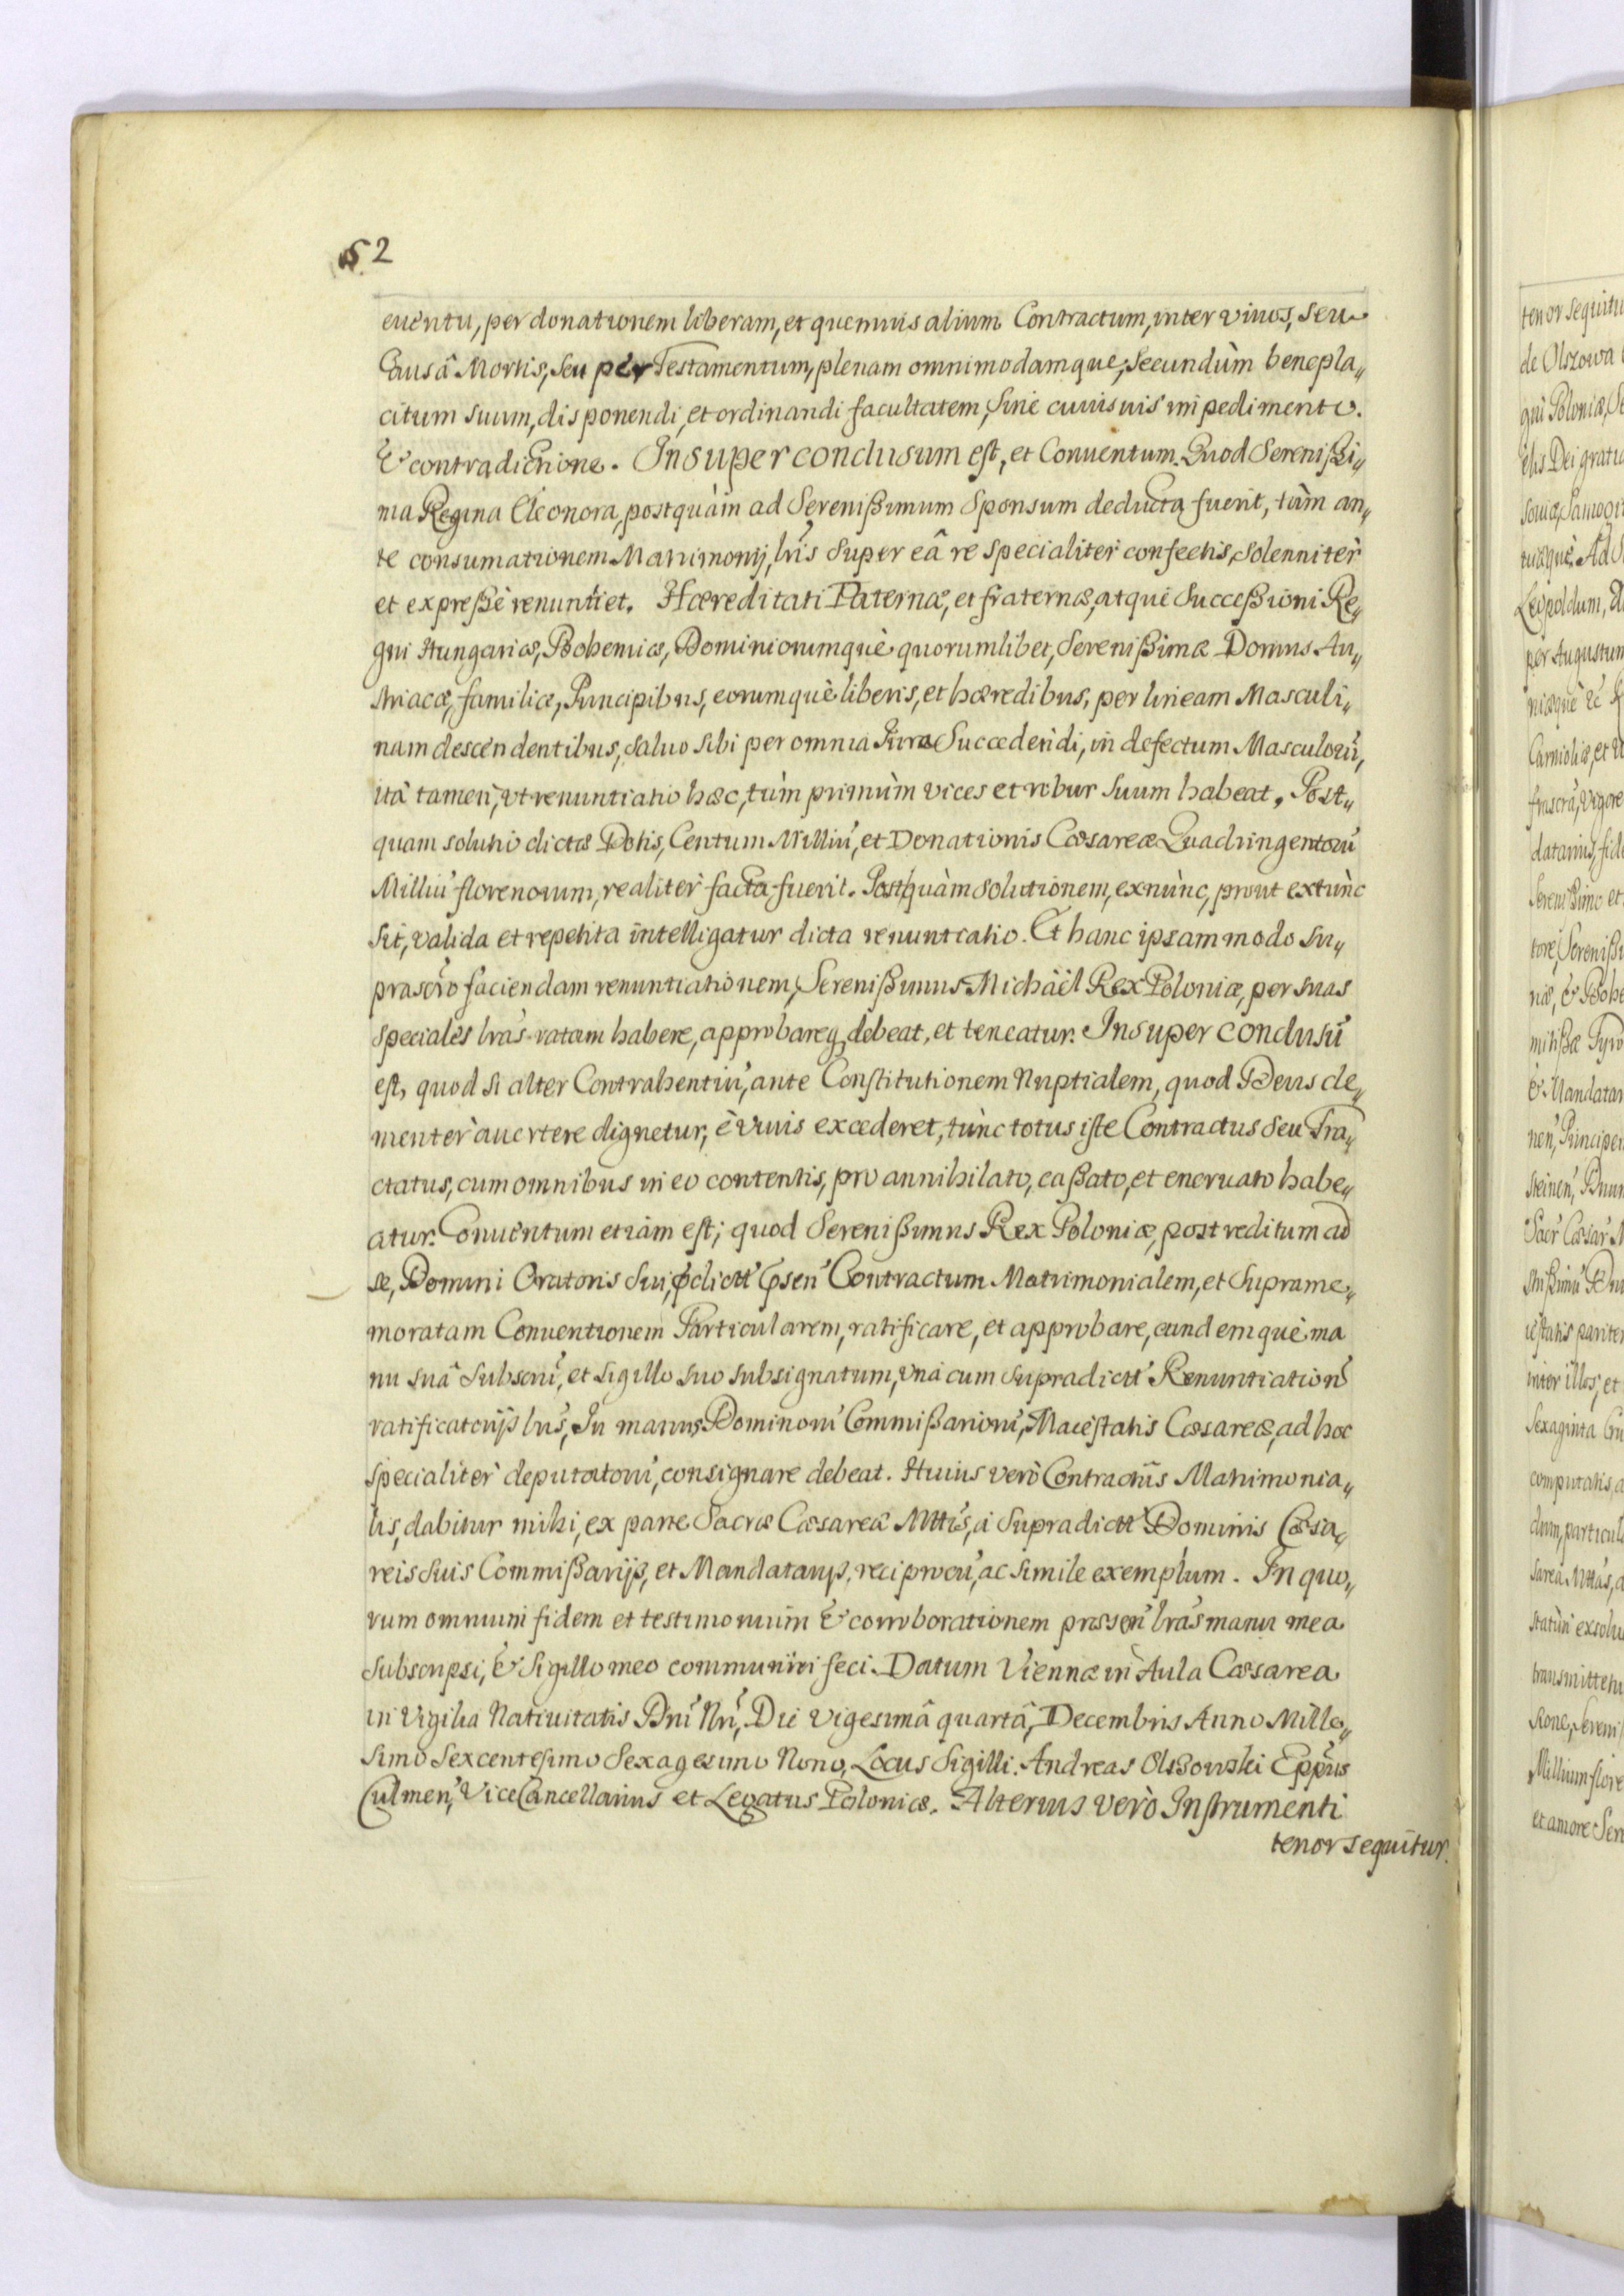 52
euentu, per donationem liberam, et quemuis alium Contractum, inter viuos, seu
Causâ Mortis, seu per Testamentum, plenam omnimodamque, Secundùm benepla„
citum suum, disponendi, et ordinandi facultatem, sine cuiusuis impedimento.
& contradictione. Insuper conclusum est, et Conuentum. Quod Serenißi„
ma Regina Eleonora, postquàm ad Serenißimum Sponsum deducta fuerit, tàm an„
te consumationem Matrimonij, lris super eâ re specialiter confectis, solenniter
et expreßè renuntiet. Hæreditati Paternæ, et fraternæ, atque Succeßioni Re„
gni Hungariæ, Bohemiæ, Dominiorumquè quorumlibet, Serenißimæ Domus Au„
striacæ, familiæ, Principibus, eorumquè liberis, et hæredibus, per lineam Masculi„
nam descendentibus, saluo sibi per omnia Iure Succedendi, in defectum Masculorũ,
ità tamen, vt renuntiatio hæc, tùm primùm vices et robur suum habeat. Post„
quam solutio dictæ Dotis, Centum Milliũ, et Donationis Cæsareæ Quadringentorũ
Milliũ florenorum, realiter facta fuerit. Post quàm solutionem, exnùnc, prout extùnc
sit, valida et repetita intelligatur dicta renuntiatio. Et hanc ipsam modo su„
prascro faciendam renuntiationem, Serenißimus Michäel Rex Poloniæ, per suas
speciales lras ratam habere, approbareq, debeat, et teneatur. Insuper conclusũ
est, quod si alter Contrahentiũ, ante Constitutionem Nuptialem, quod Deus cle„
menter auertere dignetur, è viuis excederet, tùnc totus iste Contractus seu Tra„
ctatus, cum omnibus in eo contentis, pro annihilato, caßato, et eneruato habe„
atur. Conuentum etiàm est; quod Serenißimus Rex Poloniæ, post reditum ad
se, Domini Oratoris sui, Contractum Matrimonialem, et Suprame„
moratam Conuentionem Particularem, ratificare, et approbare, eundemquè ma
nu suâ subscri, et sigillo suo subsignatum, vnà cum supradictt Renuntiation
ratificatorijs lris, In manus Dominorũ Commißariorũ, Maiestatis Cæsareæ, ad hoc
specialiter deputatorũ, consignare debeat. Huius verò Contractûs Matrimonia„
lis, dabitur mihi, ex parte Sacræ Cæsareæ Mttis, à supradictt Dominis Cæsa„
reis suis Commißarijs, et Mandatarijs, reciprocũ, ac simile exemplum. In quo„
rum omnium fidem et testimonium & corroborationem præsen lras manu mea
subscripsi, & Sigillo meo communiri feci. Datum Viennæ in Aula Cæsarea
in Vigilia Natiuitatis Dni Nri, Die Vigesimâ quartâ, Decembris Anno Mille„
simo Sexcentesimo Sexagesimo Nono, Locus Sigilli. Andreas Olszowski Eppus
Culmen, Vice Cancellarius et Legatus Poloniæ. Alterius verò Instrumenti
tenor sequitur.